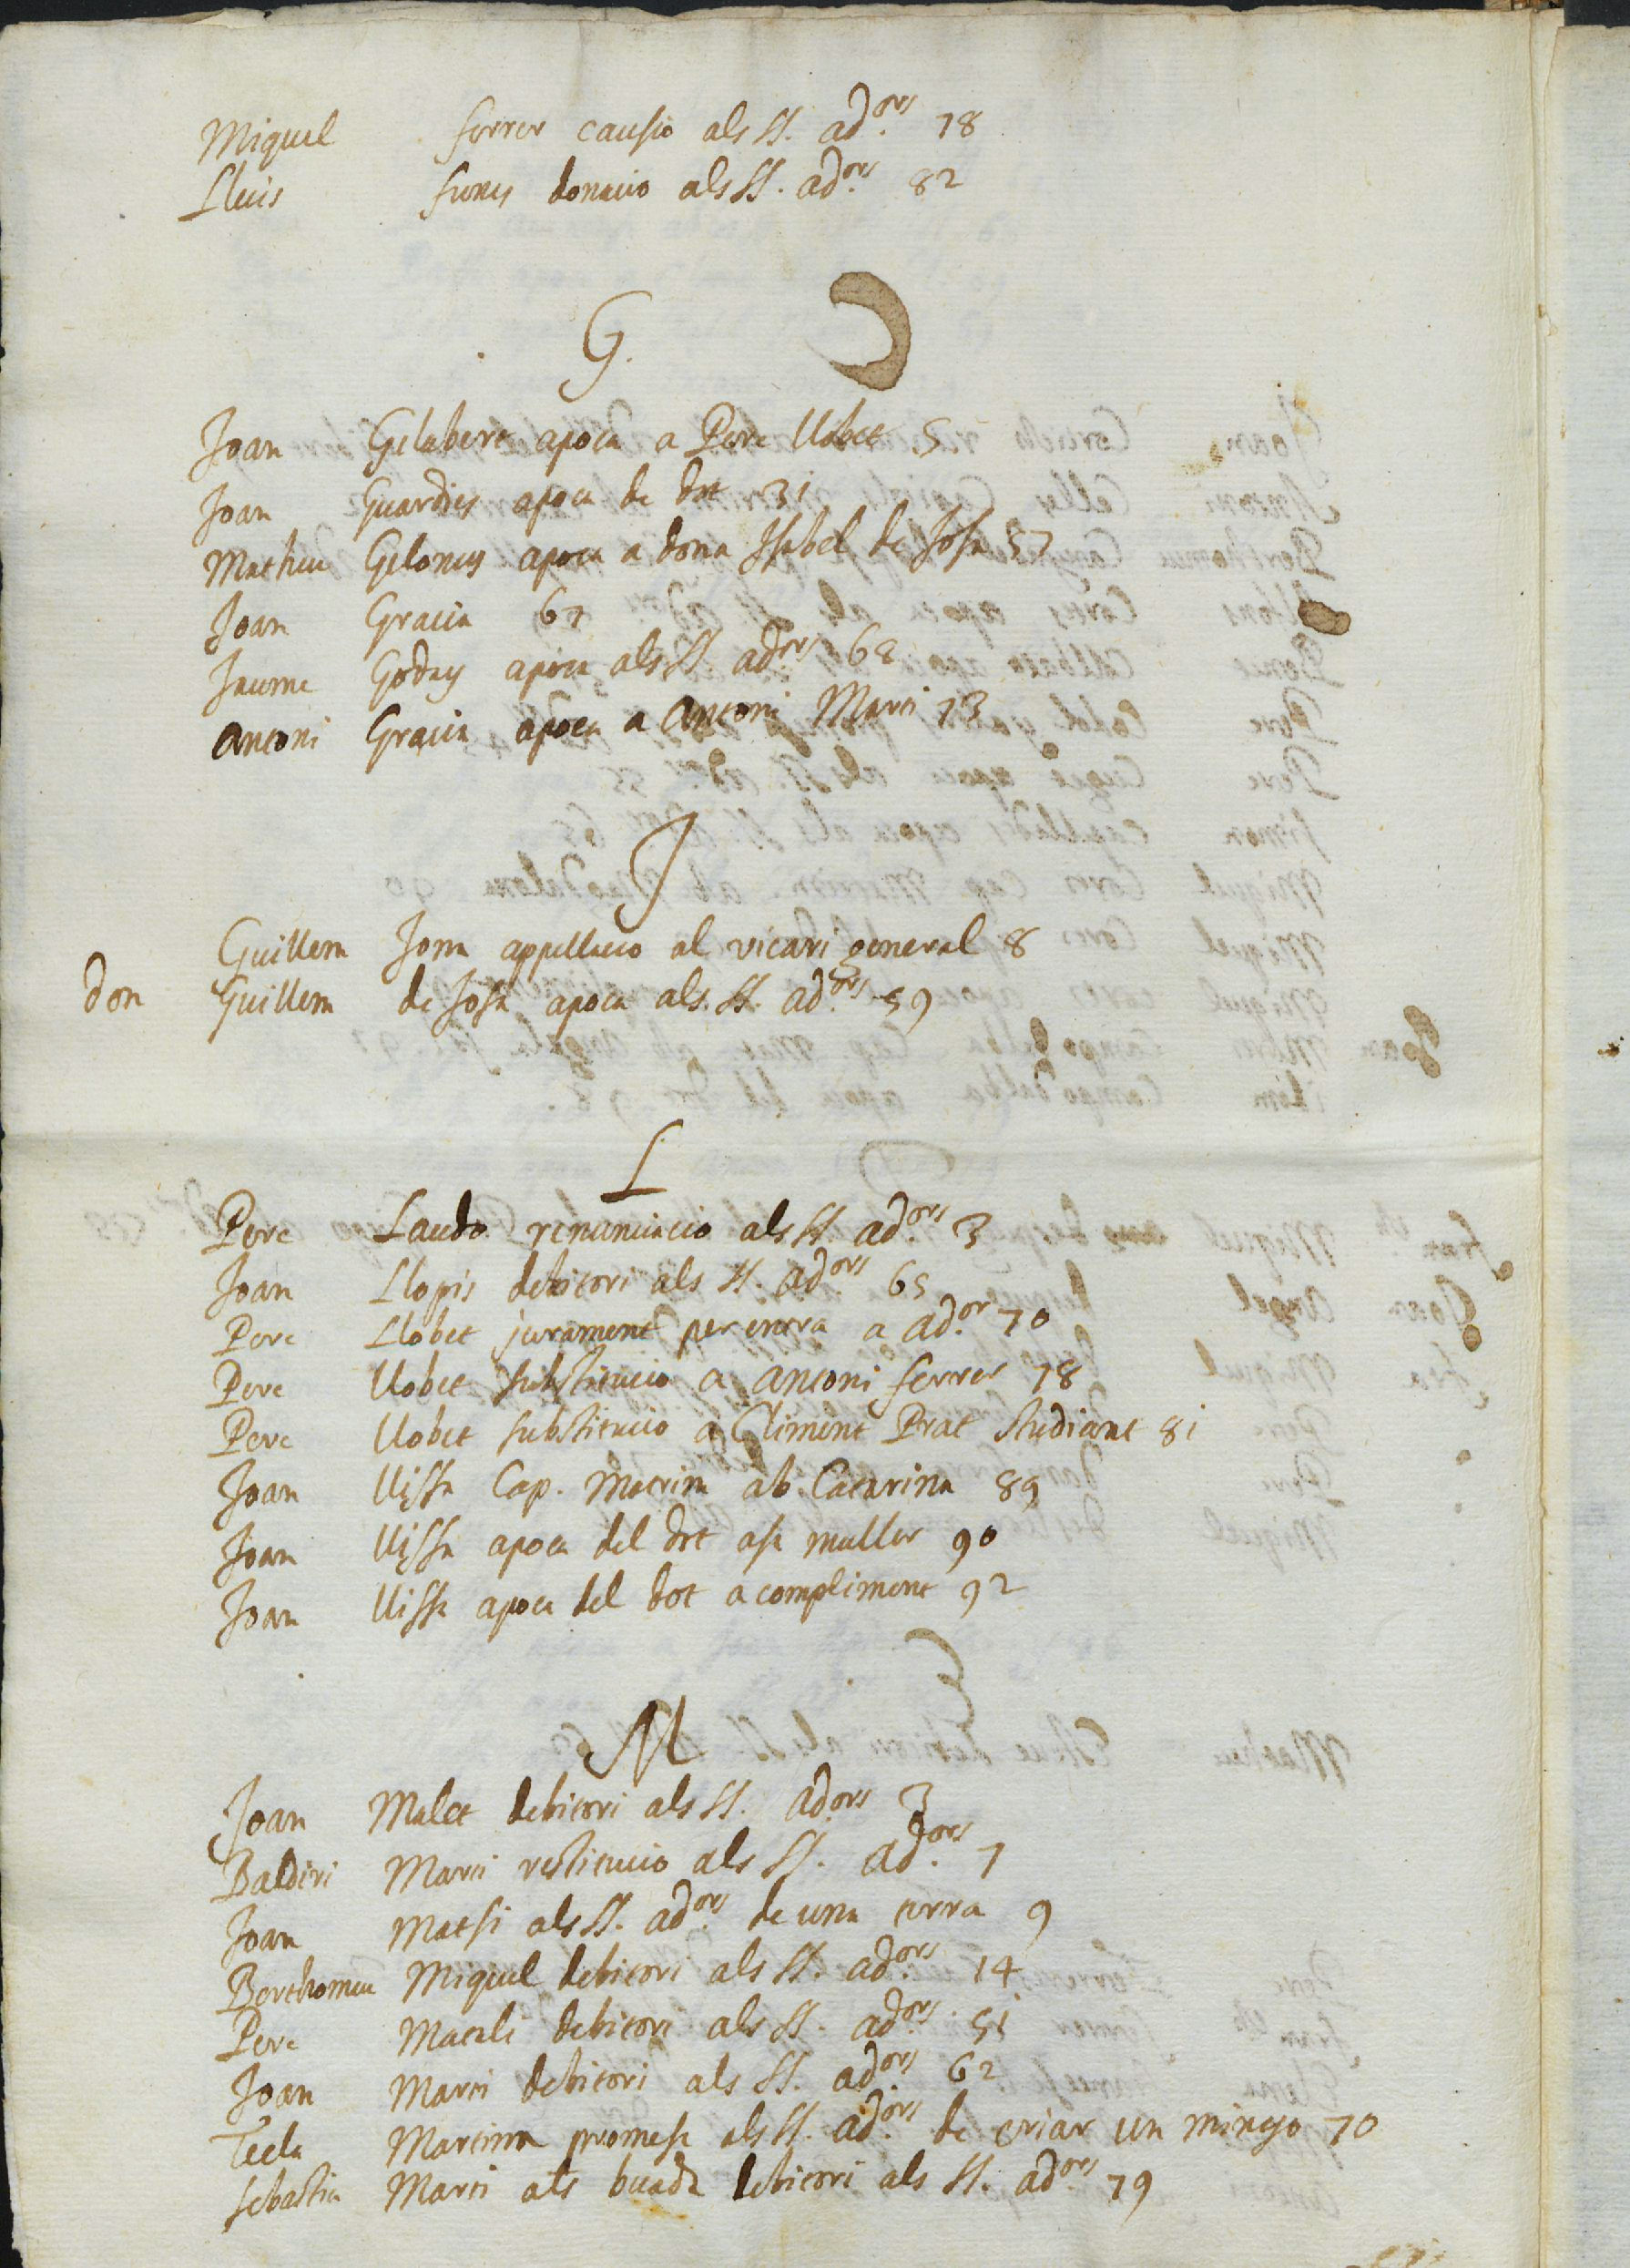 Miquel ferrer causio als SS. ad.ors 78
Lluis funes donacio als SS. ad.ors 82
G.
Joan Gelabert apoca a Pere Llobet 5
Joan Guardies apoca de dot 31
Matheu Gelones apoca a dona Isabel de Josa 57
Joan Gracia 67
Jaume Goday apoca als SS. ad.ors 68
Antoni Gracia apoca a Antoni Marti 73
J
Guillem Jona appellacio al vicari general 8
don Guillem de Josa apoca als SS. ad.ors 59
L
Pere Laudo renunciacio als SS. ad.ors 3
Joan Llopis debitori als SS. ad.ors 65
Pere Llobet jurament per entra a ad.or 70
Pere Llobet substitucio a Antoni ferrer 78
Pere Llobet substitucio a Climent Prat Studiant 81
Joan Llissa Cap. Matrim ab Catarina 89
Joan Llissa apoca del dot a sa muller 90
Joan Llissa apoca del dot a compliment 92
M
Joan Malet debitori als SS. ad.ors 3
Baldiri Marti restitucio als SS. ad.ors 7
Joan Matsi als SS. ad.ors de una terra 9
Berthomeu Miquel debitori als SS. ad.ors 14
Pere Matali debitori als SS. ad.ors 51
Joan Marti debitori als SS. ad.ors 62
Tecla Martina promesa als SS. ad.ors de criar un minyo 70
Sebastia Marti als buada debitori als SS. ad.ors 79